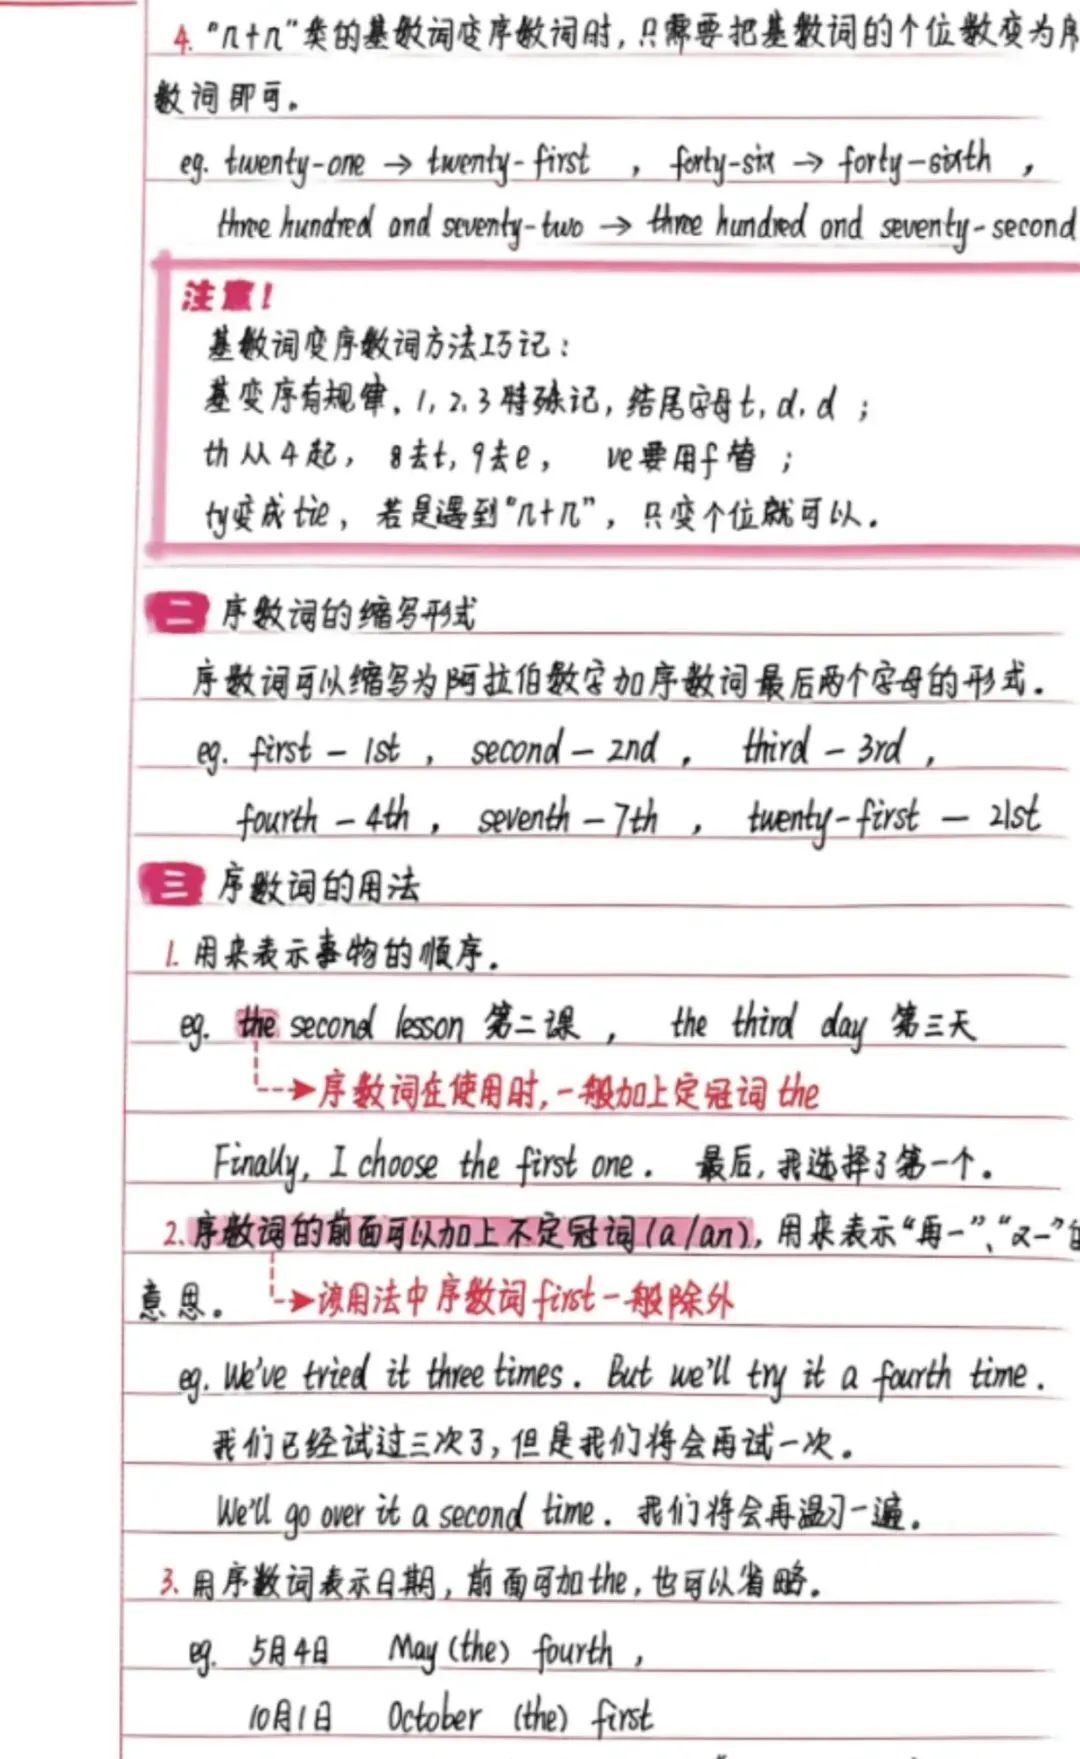 4. “几十几”类的基数词变序数词时，只需要把基数词的个位数变为序
数词即可。
eg. twenty-one → twenty-first ， forty-six → forty-sixth ，
three hundred and seventy-two → three hundred and seventy-second
注意！
基数词变序数词方法巧记：
基变序有规律、1,2,3特殊记，结尾字母t,d,d；
th从4起，8去t,9去e， ve要用f替；
ty变成tie，若是遇到“几十几”，只变个位就可以。
二 序数词的缩写形式
序数词可以缩写为阿拉伯数字加序数词最后两个字母的形式。
eg. first – 1st ， second – 2nd ， third – 3rd ，
fourth – 4th ， seventh – 7th ， twenty-first – 21st
三 序数词的用法
1. 用来表示事物的顺序。
eg. the second lesson 第二课 ， the third day 第三天
序数词在使用时，一般加上定冠词the
Finally, I choose the first one. 最后，我选择了第一个。
2. 序数词的前面可以加上不定冠词(a/an)，用来表示“再一”、“又一”的
意思。 该用法中序数词first一般除外
eg. We've tried it three times. But we'll try it a fourth time.
我们已经试过三次了，但是我们将会再试一次。
We'll go over it a second time. 我们将会再温习一遍。
3. 用序数词表示日期，前面可加the，也可以省略。
eg. 5月4日 May (the) fourth ，
10月1日 October (the) first